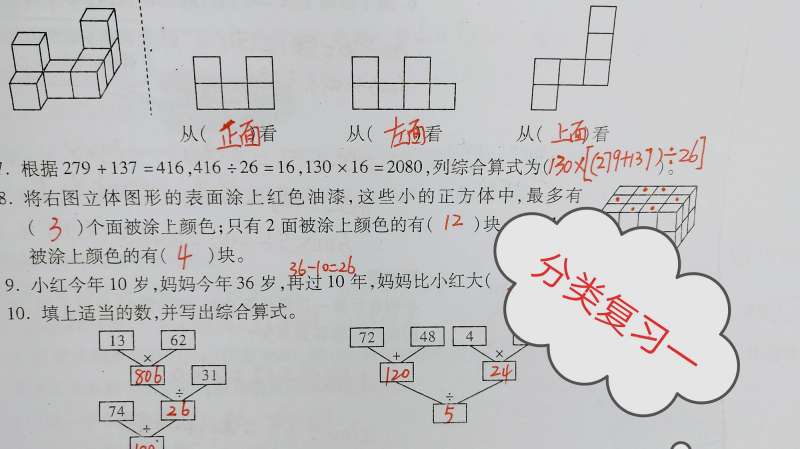 从(正面)看 从(左面)看 从(上面)看
7. 根据 279 + 137 = 416, 416 ÷ 26 = 16, 130 × 16 = 2080, 列综合算式为(130×[(279+137)÷26])。
8. 将右图立体图形的表面涂上红色油漆, 这些小的正方体中, 最多有
( 3 )个面被涂上颜色; 只有 2 面被涂上颜色的有( 12 )块
被涂上颜色的有( 4 )块。
36-10=26
9. 小红今年 10 岁, 妈妈今年 36 岁, 再过 10 年, 妈妈比小红大(
10. 填上适当的数, 并写出综合算式。
13 62 72 48 4
× + ×
806 31 120 24
÷ ÷
74 26 5
+
分类复习一